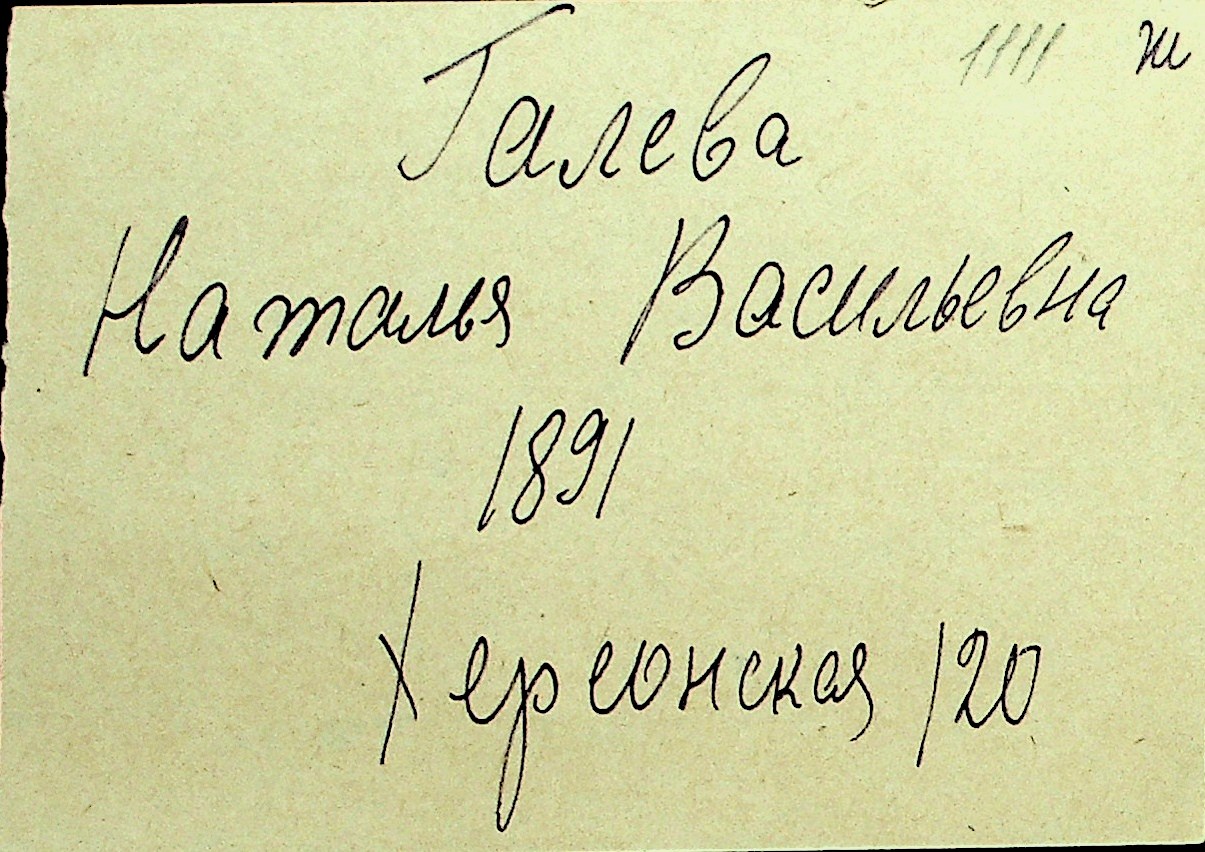 1111 ж
Галева
Наталья Васильевна
1891
Херсонская 120